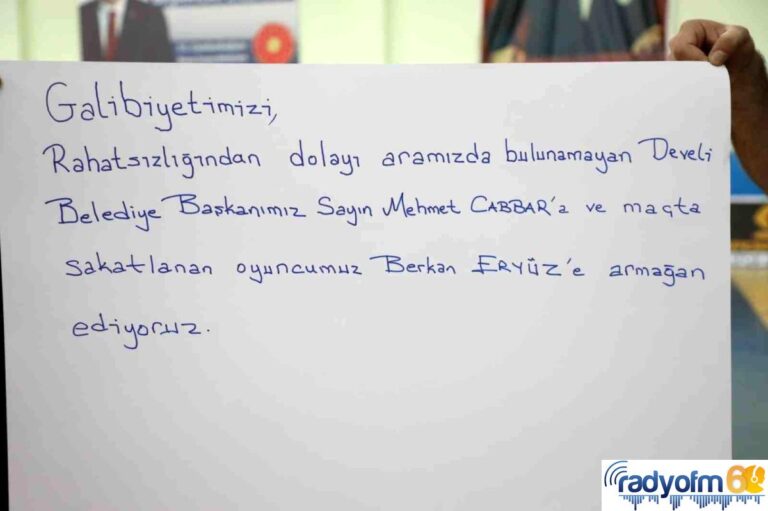 Galibiyetimizi,
Rahatsızlığından dolayı aramızda bulunamayan Develi
Belediye Başkanımız Sayın Mehmet CABBAR'a ve maçta
sakatlanan oyuncumuz Berkan ERYÜZ'e armağan
ediyoruz.
radyofm60